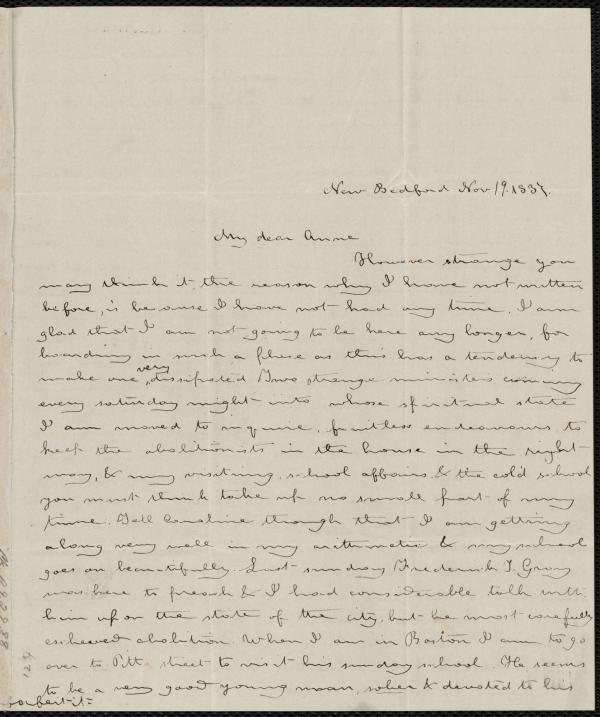 New Bedford Nov 19. 1837.
My dear Anne
However strange you
may think it, the reason why I have not written
before, is because I have not had any time. I am
glad that I am not going to be here any longer, for
boarding in such a place as this has a tendency to
make one very dissipated Two strange ministers coming
every saturday night into whose spiritual state
I am moved to inquire, fruitless endeavours to
keep the abolitionists in the house in the right
way, & my visiting, school affairs & the cold school
you must think take up no small part of my
time. Tell Caroline though that I am getting
along very well in my arithmetic & my school
goes on beautifully. Last sunday Frederick T. Gray
was here to preach & I had considerable talk with
him upon the state of the city, but he most carefully
eschewed abolition. When I am in Boston I am to go
over to Pitt street to visit his sunday school. He seems
to be a very good young man, sober & devoted to his